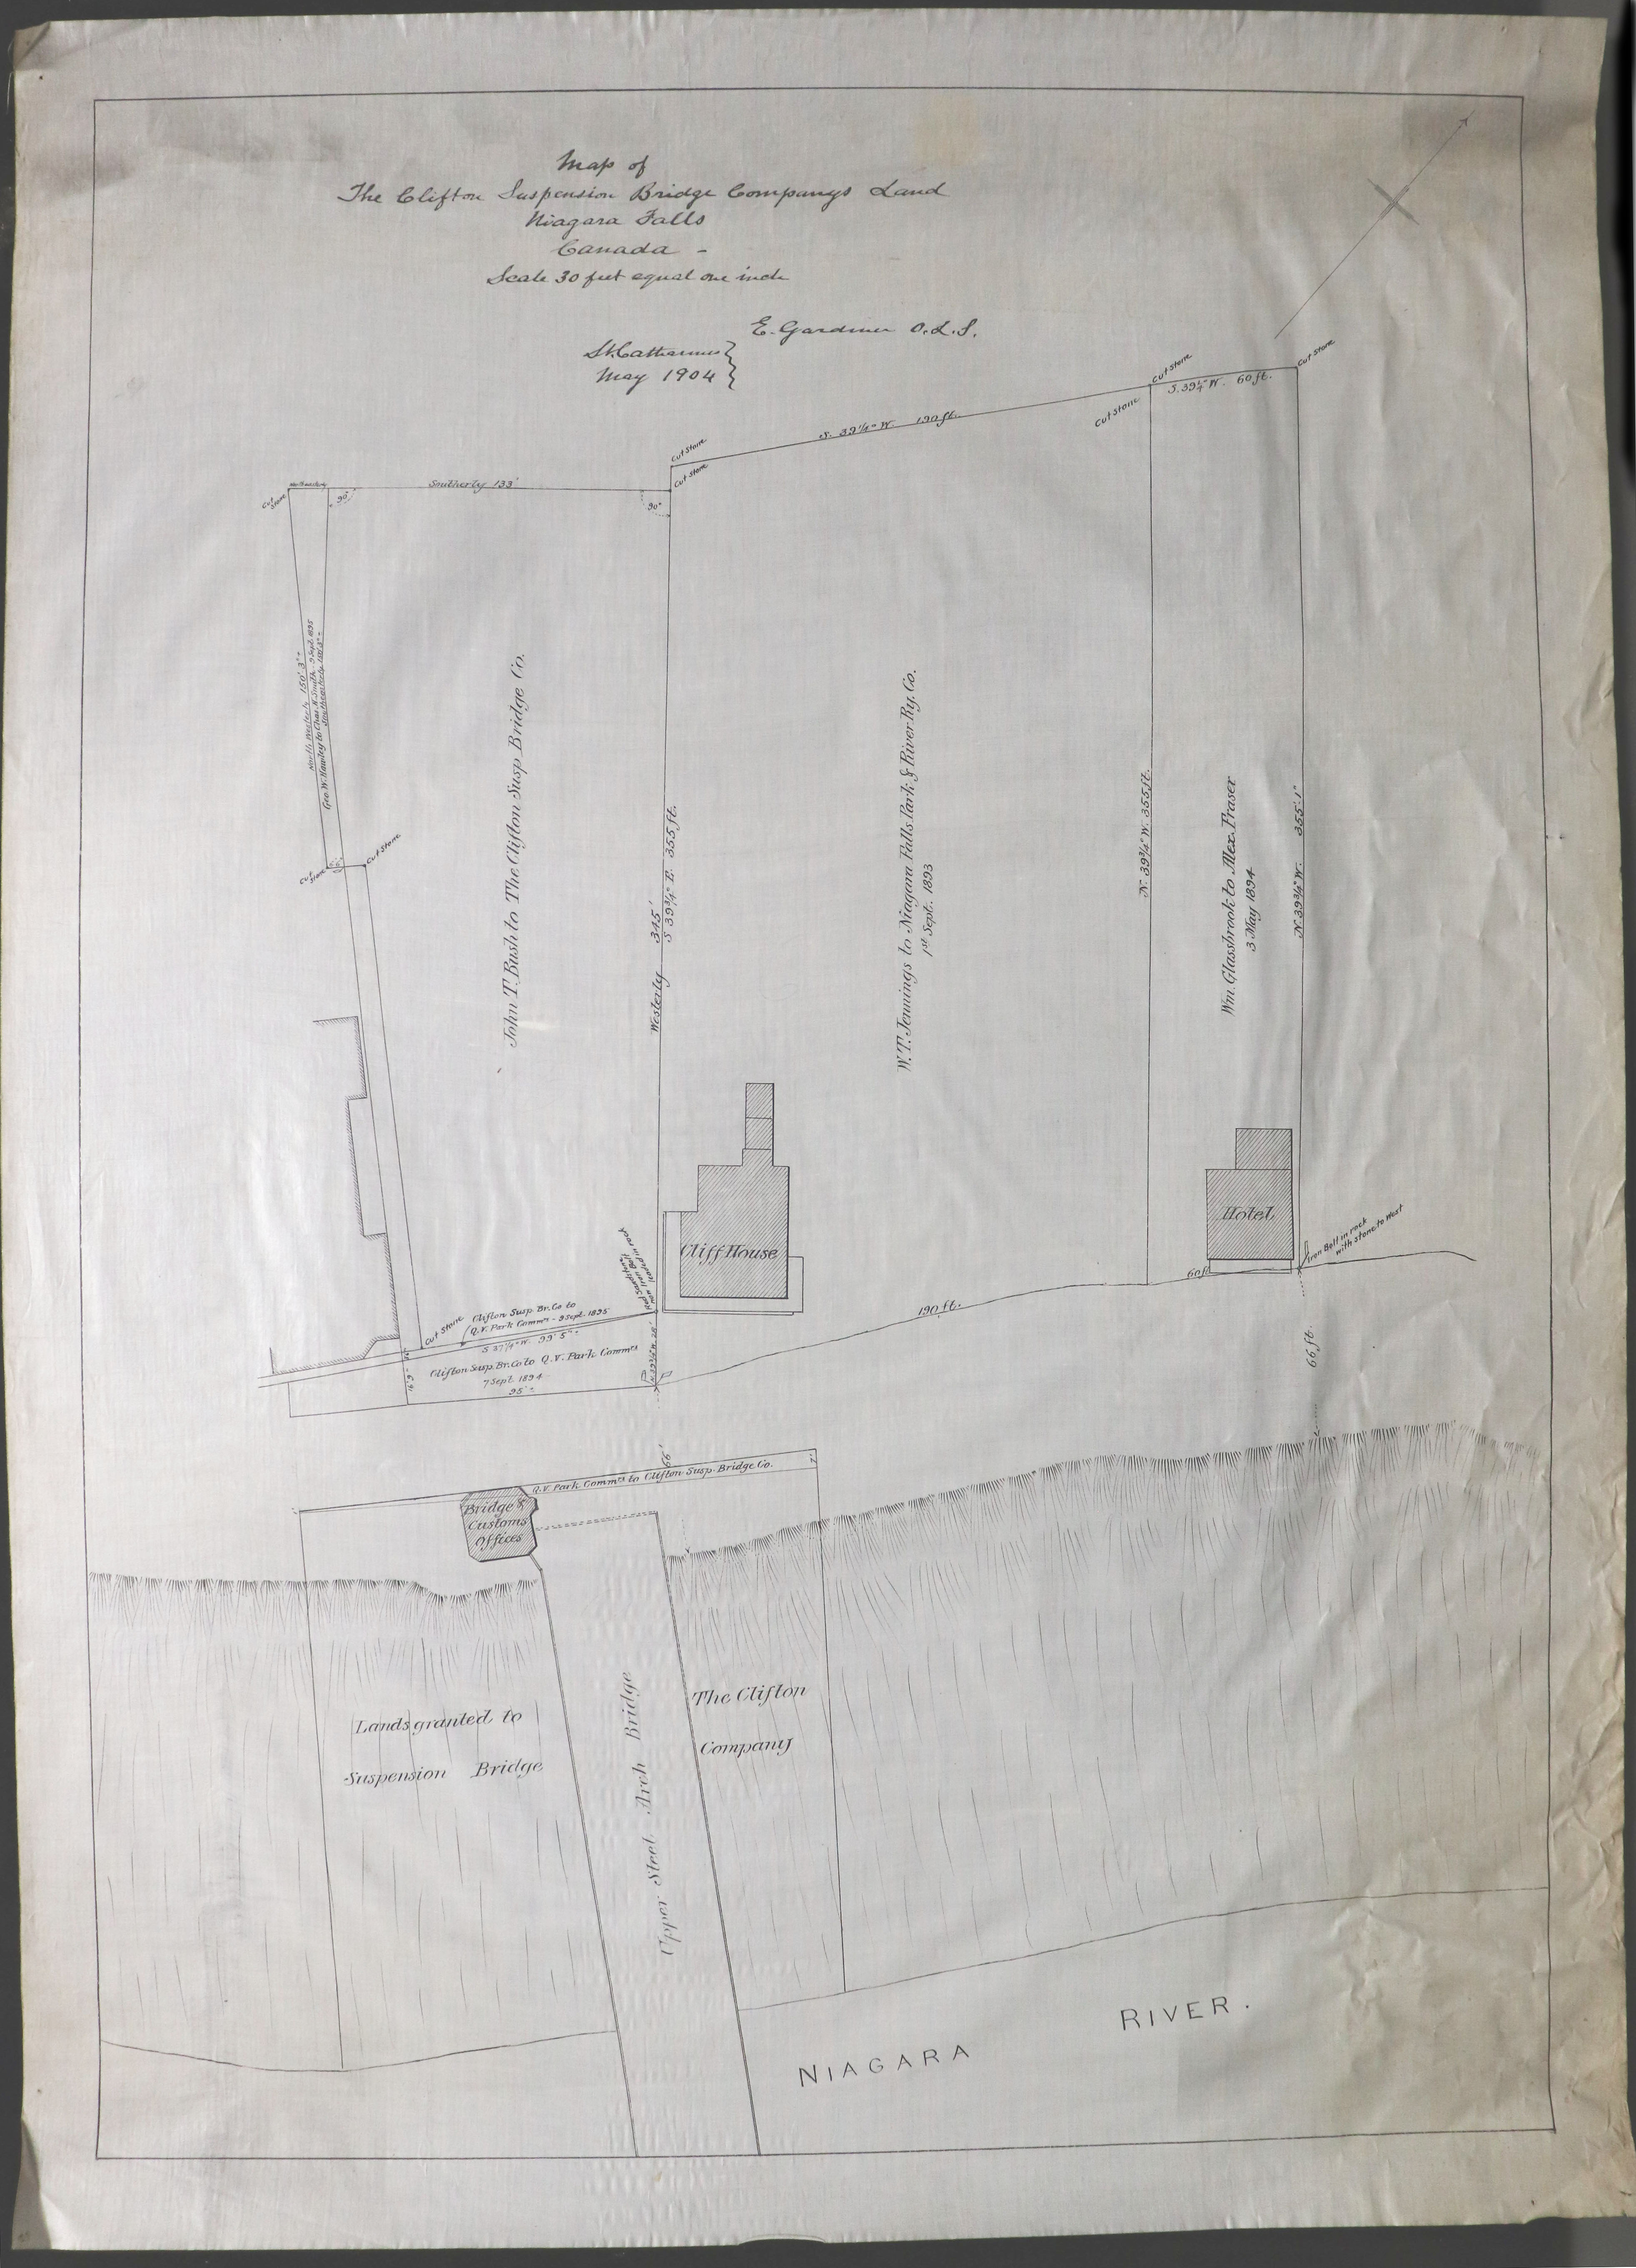 Map of
The Clifton Suspension Bridge Companys Land
Niagara Falls
Canada -
Scale 30 feet equal one inch
E. Gardiner O.L.S.
St. Catharines
May 1904
Cut Stone
Cut Stone
S. 39¼° W. 60 ft.
Cut Stone
S. 39¼° W. 190 ft.
Cut Stone
Cut Stone
Southerly 133'
Cut Stone
90°
90°
North Westerly 150' 3"
Geo. W. Hawley to Chas. N. Smith 9 Sept. 1895
Cut Stone
Cut Stone
John T. Bush to The Clifton Susp Bridge Co.
Westerly 345'
S 39¾° E. 355 ft.
W. T. Jennings to Niagara Falls Park & River Ry. Co.
1st Sept. 1893
N. 39¾° W. 355 ft.
Wm. Glassbrook to Alex. Fraser
3 May 1894
N. 39¾° W. 355'.1"
Cliff House
Hotel
Iron Bolt in rock
with stone to West
60 ft
190 ft.
66 ft.
Cut Stone
Clifton Susp. Br. Co to
Q.V. Park Commrs - 9 Sept. 1895
S 37¼° W. 99' 5"
Clifton Susp. Br. Co to Q.V. Park Commrs
7 Sept. 1894
95'
66'
Q.V. Park Commrs to Clifton Susp. Bridge Co.
Bridge &
Customs
Offices
Lands granted to
The Clifton
Suspension Bridge
Company
Upper Steel Arch Bridge
NIAGARA RIVER.